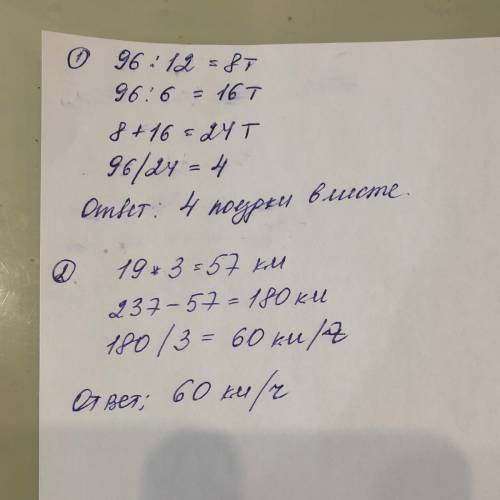 ① 96 : 12 = 8т
96 : 6 = 16 т
8 + 16 = 24 т
96/24 = 4
Ответ: 4 поездки вместе.
② 19 * 3 = 57 км
237 - 57 = 180 км
180 / 3 = 60 км/ч
Ответ: 60 км/ч